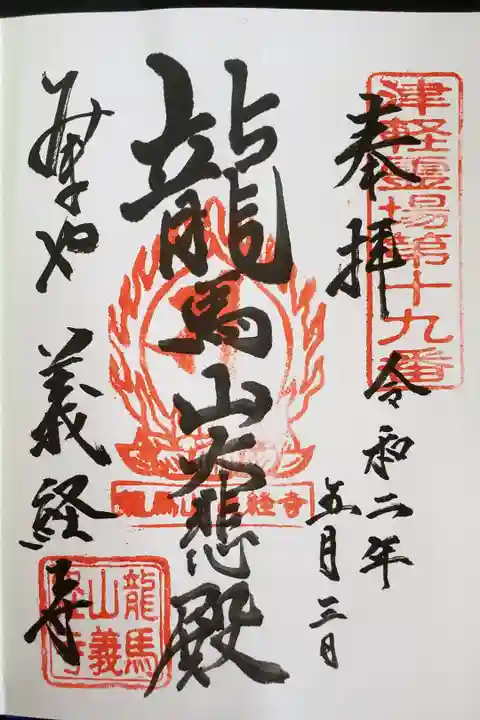 津軽霊場第十九番
奉拝
令和二年
五月三日
龍馬山大悲殿
龍馬山義経寺
みんまや 義経寺
龍馬
山義
経寺